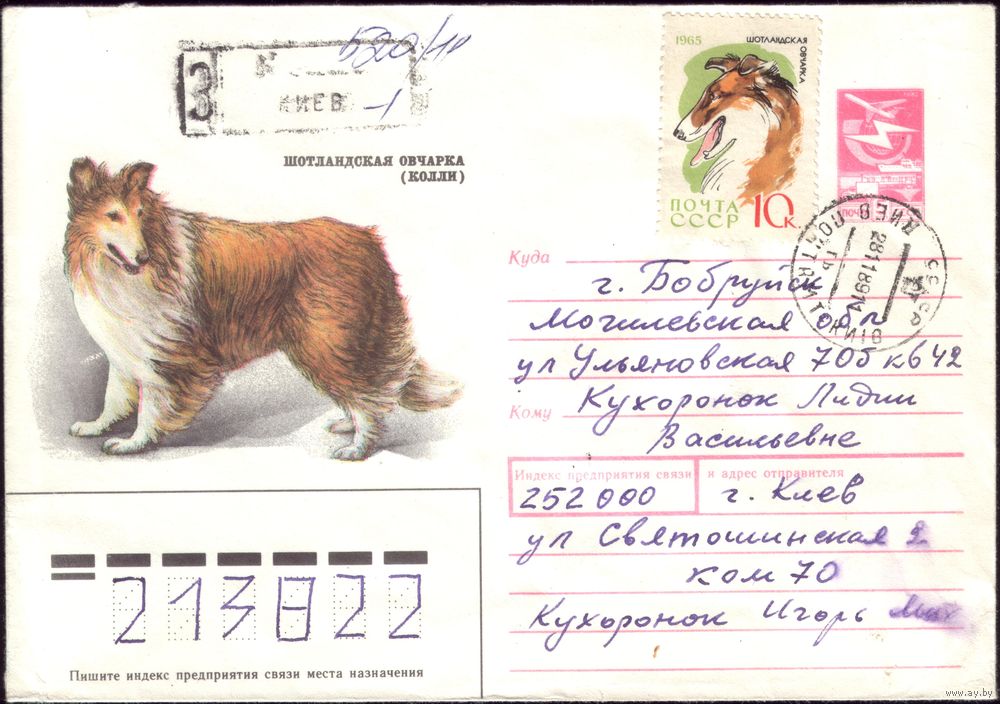 520/1p
З
КИЕВ -1
ШОТЛАНДСКАЯ ОВЧАРКА
(КОЛЛИ)
1965
ШОТЛАНДСКАЯ
ОВЧАРКА
ПОЧТА
СССР
10к.
КИЕВ ПОЧТАМТ
КИЇВ ПОШТАМТ
СССР
281189
Куда
г. Бобруйск
Могилевская обл
ул Ульяновская 70б кв 42
Кому
Кухоронок Лидии
Васильевне
Индекс предприятия связи и адрес отправителя
252000 г. Киев
ул Святошинская 2
ком 70
Кухоронок Игорь
213822
Пишите индекс предприятия связи места назначения
www.ay.by